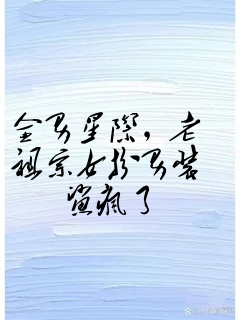 全男星際，老
祖宗女扮男裝
鯊瘋了